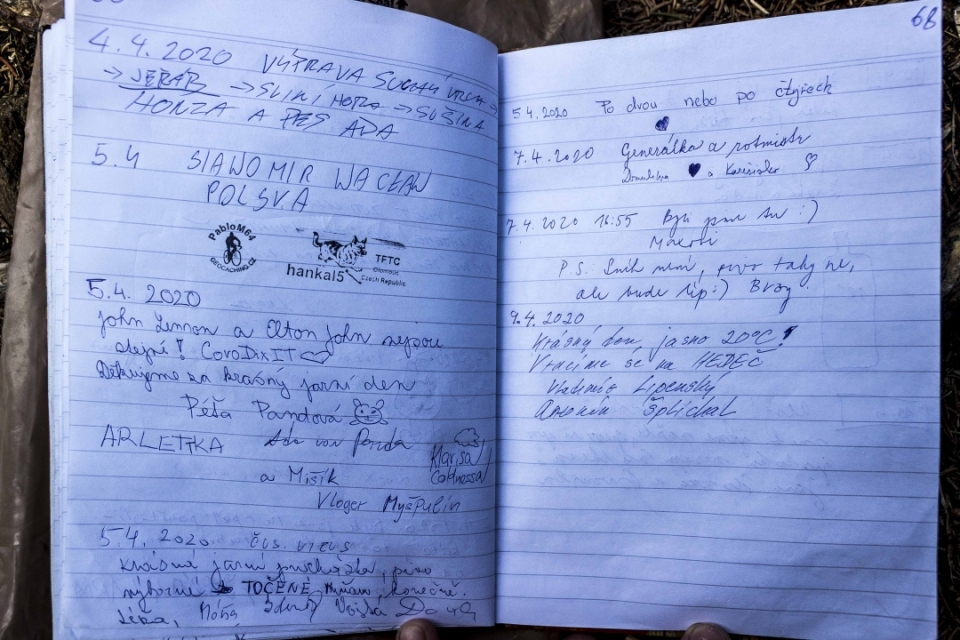 4.4.2020 VÝPRAVA SUCHÝ VRCH →
→ JEŘÁB → SVINÍ HORA → SUŠINA
HONZA A PES ADA
5.4 SLAWOMIR WACŁAW
POLSVA
PabloM64
GEOCACHING.CZ
hanka15
TFTC
Olomouc
Czech Republic
5.4. 2020
John Lennon a Elton John nejsou
stejní! CovoDixIT
Děkujeme za krásný jarní den
Péťa Pandová
ARLETKA Ada von Panda
Klarisa
a Mišík
Vloger Myšpulín
5.4. 2020
krásná jarní procházka, pivo
výborné TOČENÉ konečně.
68
5.4.2020 Po dvou nebo po čtyřech
7.4.2020 Generálka a rotmistr
7.4.2020 16:55 Byli jsme tu :)
P.S. Sníh není, pivo taky ne,
ale bude líp :)
9.4.2020
Krásný den, jasno 20°C!
Vracíme se na HEDEČ
Vladimír Lipenský
Antonín Šplíchal